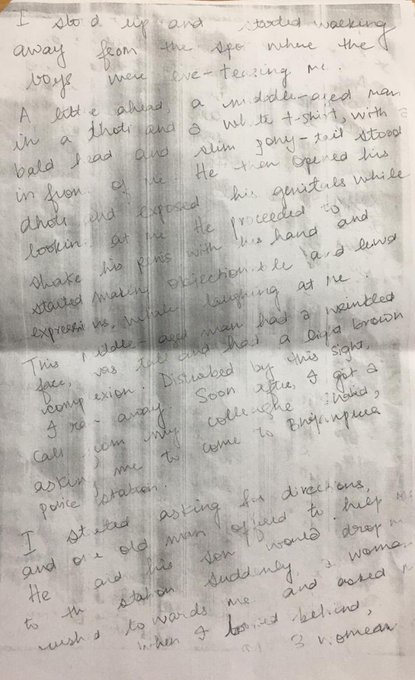 I stood up and started walking
away from the spo where the
boys were eve-teasing me.
A little ahead, a middle-aged man
in a dhoti and a white t-shirt, with a
bald head and slim pony-tail stood
in fron of me. He then opened his
dhoti and exposed his genitals while
lookin at me He proceeded to
shake his penis with his hand and
started making objection ble and lewd
express ns, while laughing at me.
This middle-aged man had a wrinkled
face, was fat and had a light brown
comp exion. Disturbed by this sight,
I ra away. Soon after, I got a
call from my colleague
asking me to come to Bhajanpura
police station.
I started asking for directions,
and one old man offered to help
He and his son would drop m
to th station Suddenly a woman
rushed towards me and asked
when I looked behind,
3 women